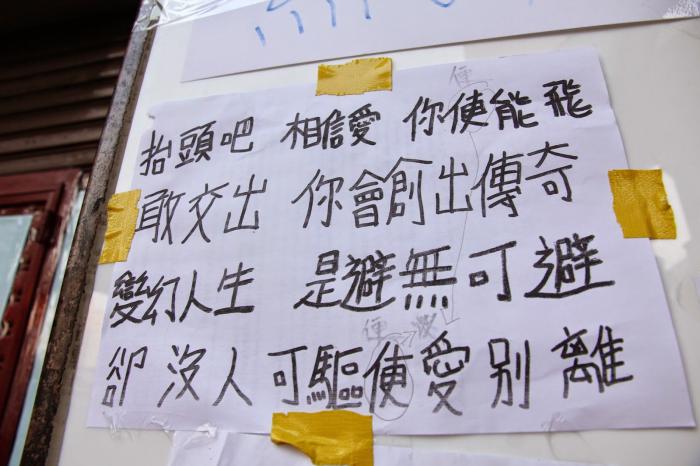 抬頭吧 相信愛 你使能飛
敢交出 你會創出傳奇
變幻人生 是避無可避
卻沒人可驅使愛別離